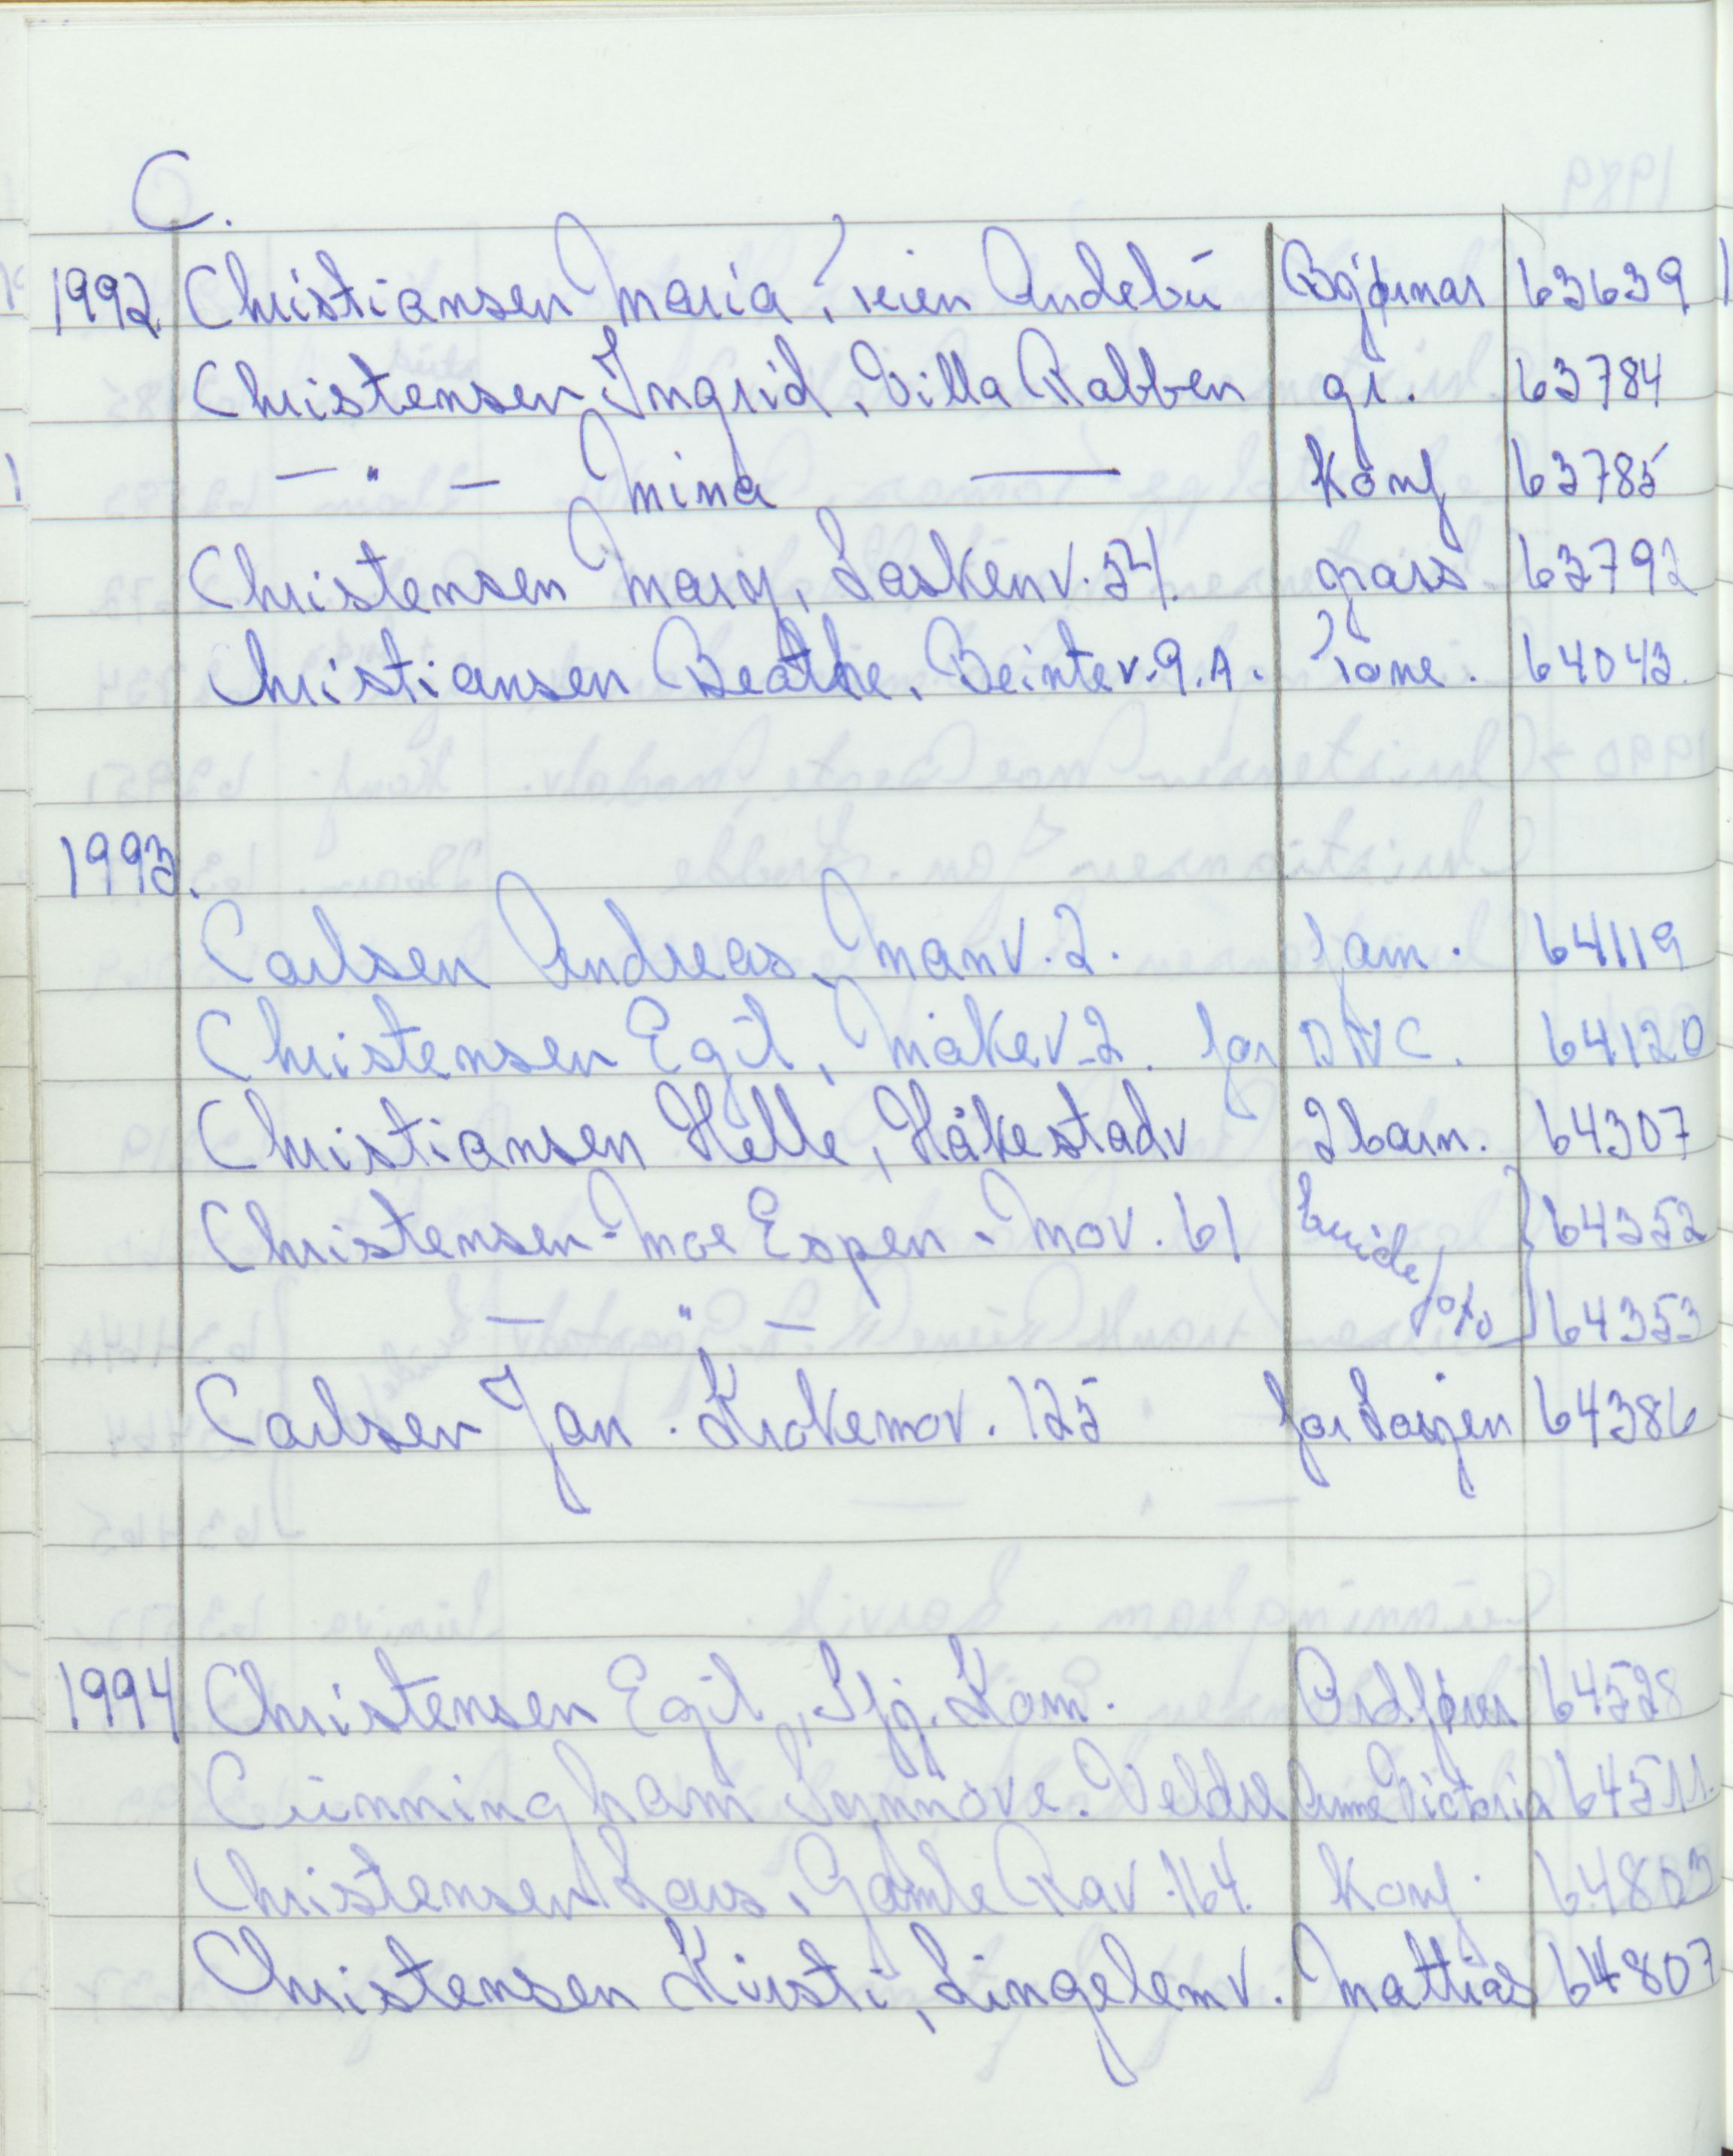 C.
1992 Christiansen Maria, veien Andebu Bjørnar 63639
Christensen Ingrid, Villa Rabben gr. 63784
— " — Mina — Konf 63785
Christensen Mary, Laskenv. 54. grass 63792
Christiansen Beathe, Beintev. 9.A. Tone. 64043.
1993.
Carlsen Andreas, Nanv. 2. fam. 64119
Christensen Egil, Måkev. 2. for DNC. 64120
Christiansen Helle, Håkestadv 2 barn. 64307
Christensen-Moe Espen, Mov. 61 brude/ 64352
— " — 64353
Carlsen Jan. Krokemov. 125 for Lasjen 64386
1994 Christensen Egil, Sfj. Kom. Ordfører 64528
Cunningham Synnøve. Veldre Anne Victoria 64511.
Christensen Lars, Gamle Rav. 164. Konf. 64803
Christensen Kirsti, Lingelemv. Mattias 64807